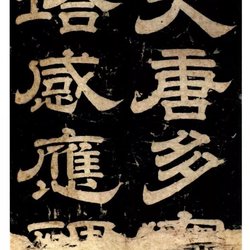 大唐多寶
塔感應碑